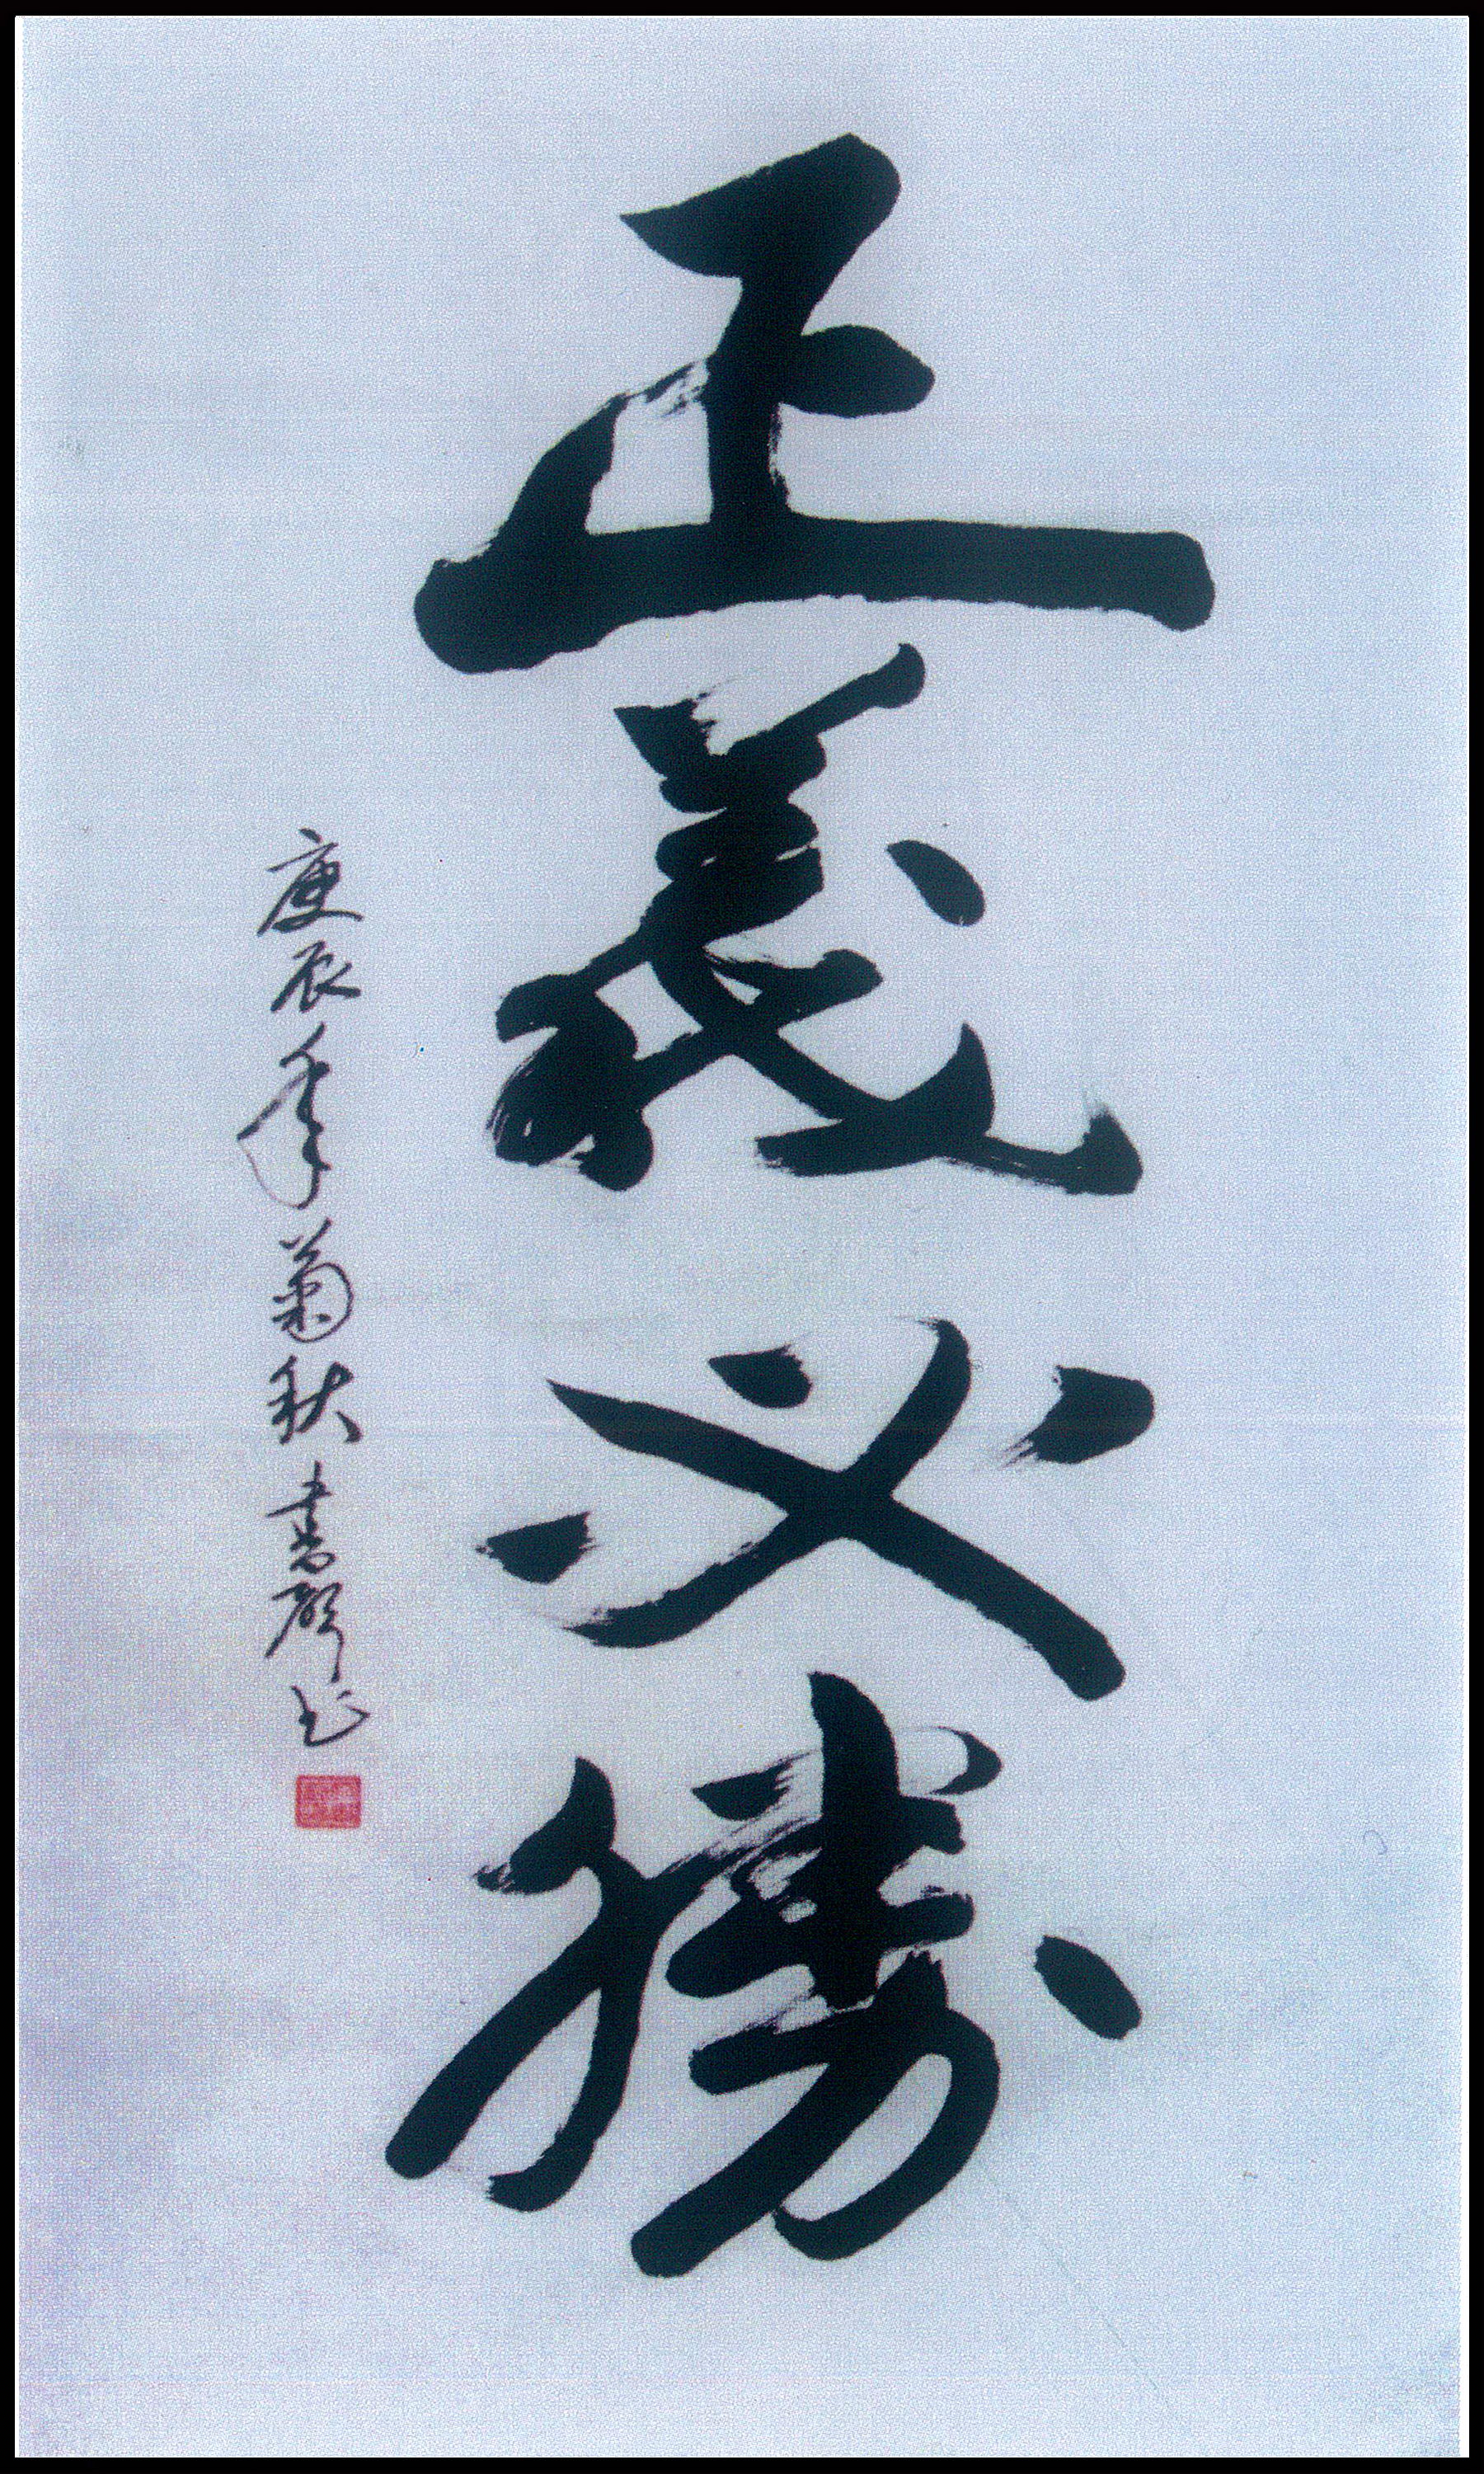 正義必勝
庚辰年菊秋書聲书